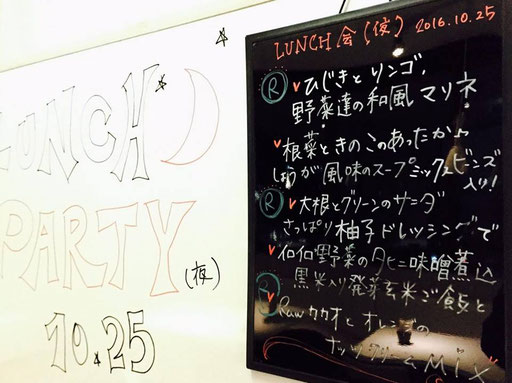 LUNCH
PARTY
(夜)
10.25
LUNCH 会 (夜) 2016.10.25
R ひじきとリンゴ、
野菜達の和風マリネ
根菜ときのこのあったか♪
しょうが風味のスープミックスビーンズ入り!
R 大根とグリーンのサラダ
さっぱり柚子ドレッシングで
野菜の 味噌煮込
R 黒米入り発芽玄米ご飯と
Rawカカオとオレンジの
ナッツクリームMix